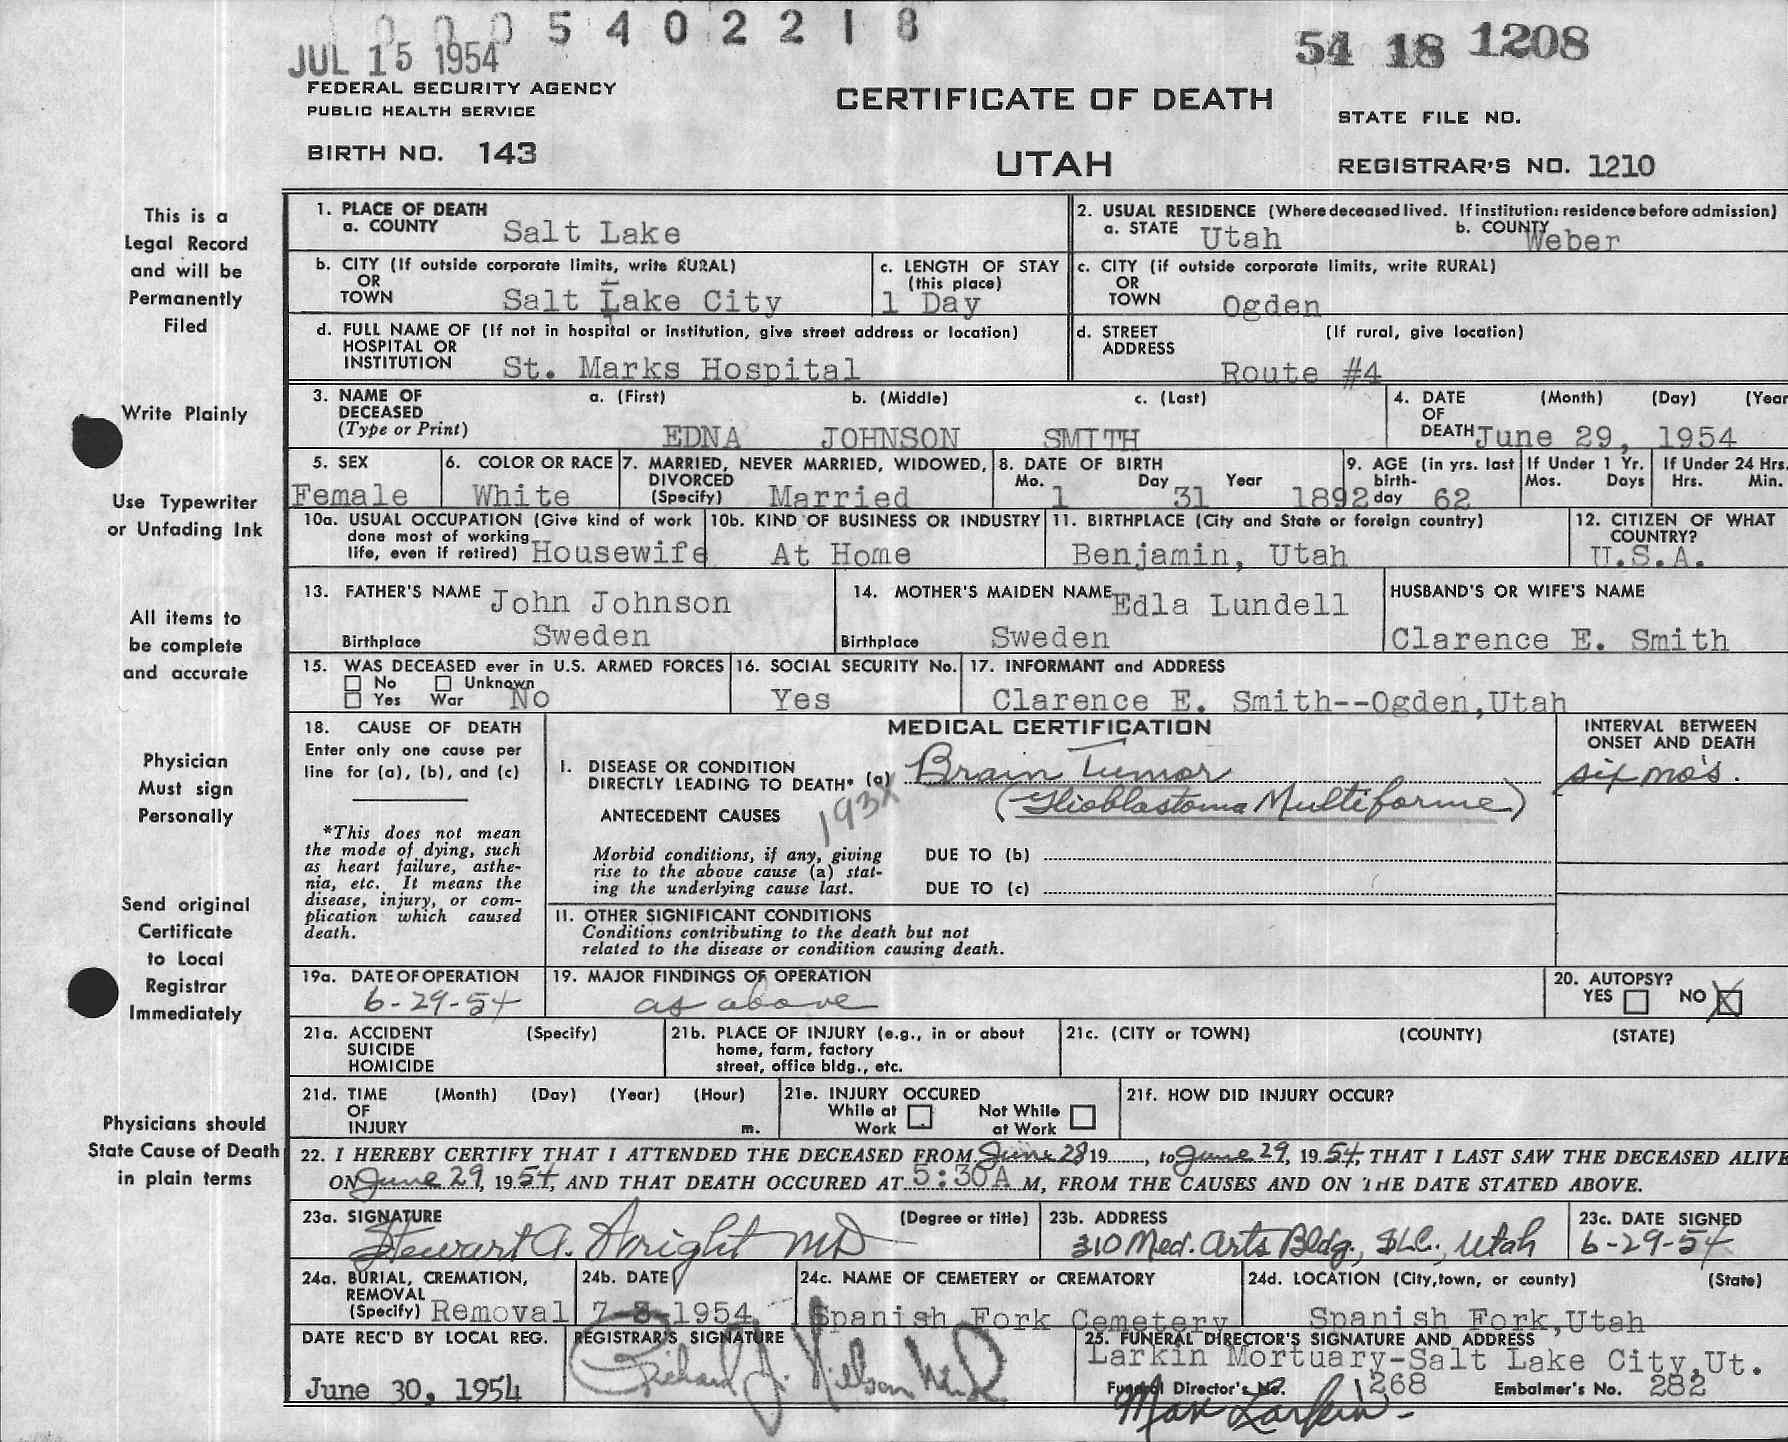 0 0 0 5 4 0 2 2 1 8
JUL 15 1954
54 18 1208
FEDERAL SECURITY AGENCY
PUBLIC HEALTH SERVICE
CERTIFICATE OF DEATH
STATE FILE NO.
BIRTH NO. 143
UTAH
REGISTRAR'S NO. 1210
This is a
Legal Record
and will be
Permanently
Filed
Write Plainly
Use Typewriter
or Unfading Ink
All items to
be complete
and accurate
Physician
Must sign
Personally
Send original
Certificate
to Local
Registrar
Immediately
Physicians should
State Cause of Death
in plain terms
1. PLACE OF DEATH
a. COUNTY Salt Lake
2. USUAL RESIDENCE (Where deceased lived. If institution: residence before admission)
a. STATE Utah b. COUNTY Weber
b. CITY (If outside corporate limits, write RURAL)
OR
TOWN Salt Lake City
c. LENGTH OF STAY
(this place)
1 Day
c. CITY (if outside corporate limits, write RURAL)
OR
TOWN Ogden
d. FULL NAME OF (If not in hospital or institution, give street address or location)
HOSPITAL OR
INSTITUTION St. Marks Hospital
d. STREET (If rural, give location)
ADDRESS
Route #4
3. NAME OF a. (First) b. (Middle) c. (Last)
DECEASED
(Type or Print) EDNA JOHNSON SMITH
4. DATE (Month) (Day) (Year
OF
DEATH June 29, 1954
5. SEX
Female
6. COLOR OR RACE
White
7. MARRIED, NEVER MARRIED, WIDOWED,
DIVORCED
(Specify) Married
8. DATE OF BIRTH
Mo. Day Year
1 31 1892
9. AGE (in yrs. last
birth-
day 62
If Under 1 Yr.
Mos. Days
If Under 24 Hrs.
Hrs. Min.
10a. USUAL OCCUPATION (Give kind of work
done most of working
life, even if retired) Housewife
10b. KIND OF BUSINESS OR INDUSTRY
At Home
11. BIRTHPLACE (City and State or foreign country)
Benjamin, Utah
12. CITIZEN OF WHAT
COUNTRY?
U.S.A.
13. FATHER'S NAME John Johnson
Birthplace Sweden
14. MOTHER'S MAIDEN NAME Edla Lundell
Birthplace Sweden
HUSBAND'S OR WIFE'S NAME
Clarence E. Smith
15. WAS DECEASED ever in U.S. ARMED FORCES
No Unknown
Yes War No
16. SOCIAL SECURITY No.
Yes
17. INFORMANT and ADDRESS
Clarence E. Smith--Ogden,Utah
18. CAUSE OF DEATH
Enter only one cause per
line for (a), (b), and (c)
*This does not mean
the mode of dying, such
as heart failure, asthe-
nia, etc. It means the
disease, injury, or com-
plication which caused
death.
MEDICAL CERTIFICATION
I. DISEASE OR CONDITION
DIRECTLY LEADING TO DEATH* (a) Brain Tumor
(Glioblastoma Multiforme)
ANTECEDENT CAUSES
193X
Morbid conditions, if any, giving
rise to the above cause (a) stat-
ing the underlying cause last.
DUE TO (b)
DUE TO (c)
INTERVAL BETWEEN
ONSET AND DEATH
six mo's.
II. OTHER SIGNIFICANT CONDITIONS
Conditions contributing to the death but not
related to the disease or condition causing death.
19a. DATE OF OPERATION
6-29-54
19. MAJOR FINDINGS OF OPERATION
as above
20. AUTOPSY?
YES NO X
21a. ACCIDENT (Specify)
SUICIDE
HOMICIDE
21b. PLACE OF INJURY (e.g., in or about
home, farm, factory
street, office bldg., etc.
21c. (CITY or TOWN) (COUNTY) (STATE)
21d. TIME (Month) (Day) (Year) (Hour)
OF
INJURY m.
21e. INJURY OCCURED
While at Not While
Work at Work
21f. HOW DID INJURY OCCUR?
22. I HEREBY CERTIFY THAT I ATTENDED THE DECEASED FROM June 28 19......, to June 29, 19 54, THAT I LAST SAW THE DECEASED ALIVE
ON June 29, 19 54, AND THAT DEATH OCCURED AT 5:30A M, FROM THE CAUSES AND ON THE DATE STATED ABOVE.
23a. SIGNATURE (Degree or title)
Stewart A. Wright MD
23b. ADDRESS
310 Med. Arts Bldg., SLC., Utah
23c. DATE SIGNED
6-29-54
24a. BURIAL, CREMATION,
REMOVAL
(Specify) Removal
24b. DATE
7-3-1954
24c. NAME OF CEMETERY or CREMATORY
Spanish Fork Cemetery
24d. LOCATION (City,town, or county) (State)
Spanish Fork,Utah
DATE REC'D BY LOCAL REG.
June 30, 1954
REGISTRAR'S SIGNATURE
Richard J. Nielson M.D.
25. FUNERAL DIRECTOR'S SIGNATURE AND ADDRESS
Larkin Mortuary-Salt Lake City,Ut.
Funeral Director's No. 1268 Embalmer's No. 282
Max Larkin